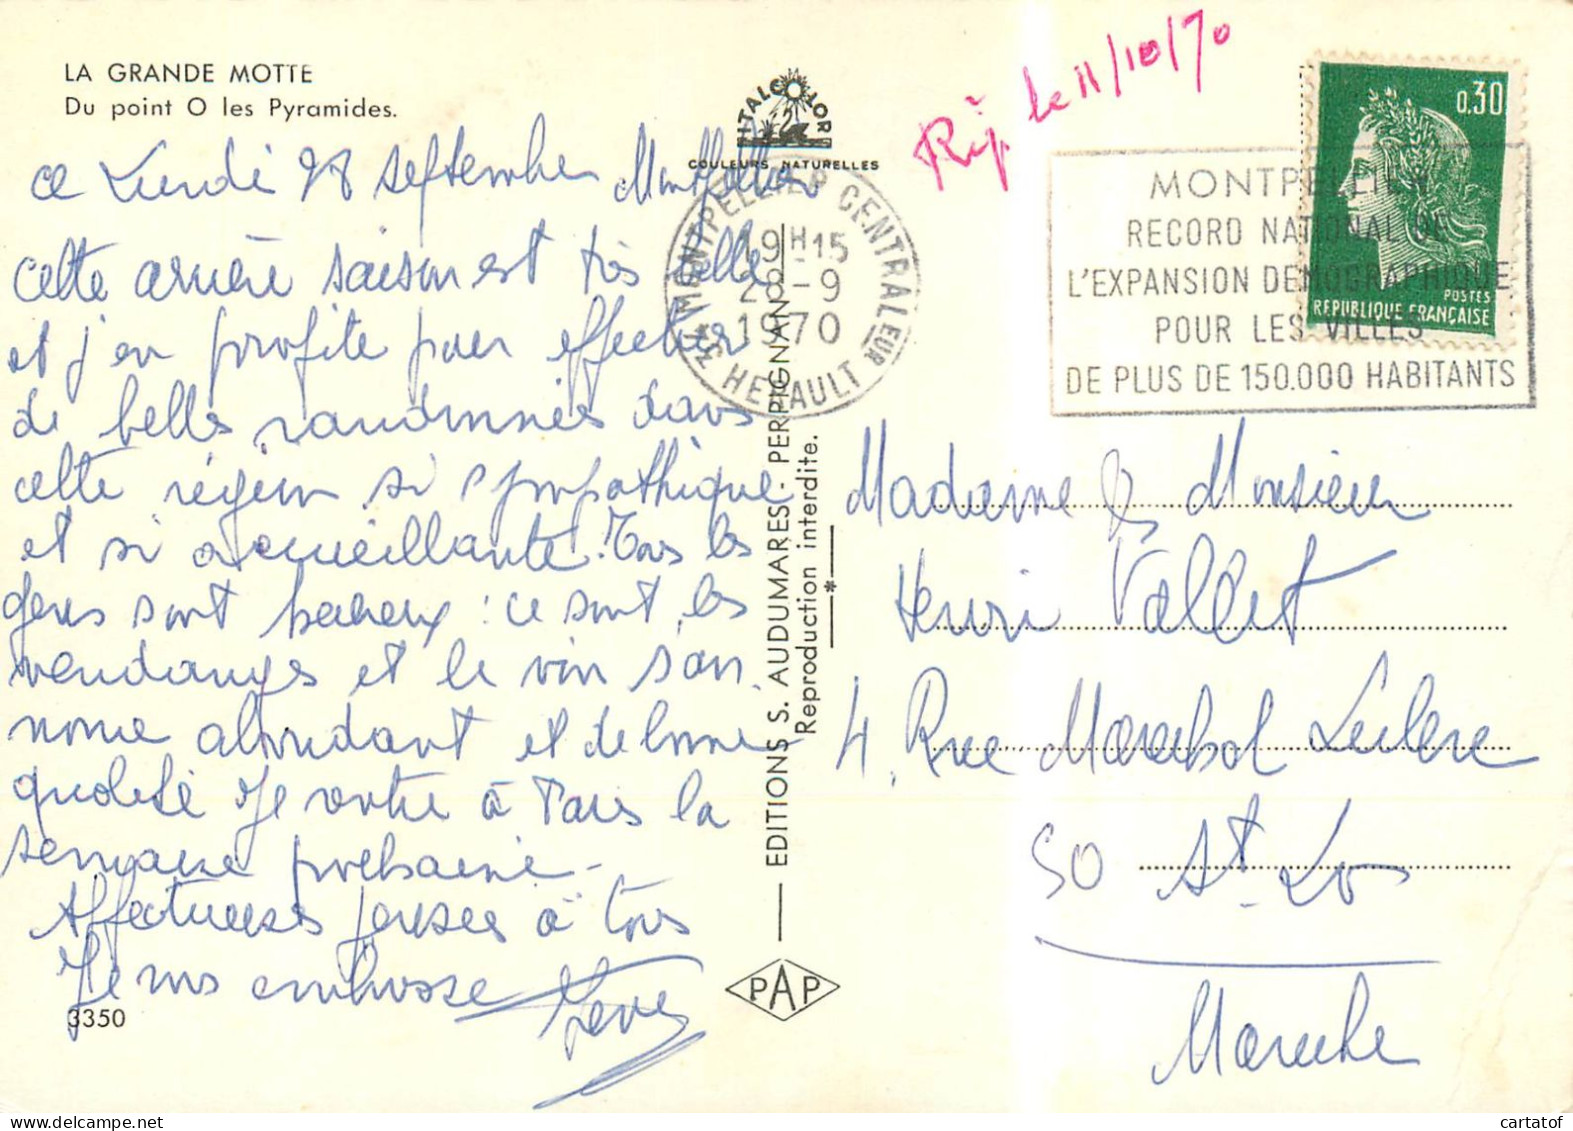 LA GRANDE MOTTE
Du point O les Pyramides.
ce Lundi 28 septembre Montpellier
cette arrière saison est très belle
et j'en profite pour effectuer
de belles randonnées dans
cette région si sympathique
et si accueillante. Tous les
gens sont heureux : ce sont les
vendanges et le vin s'an-
nonce abondant et de bonne
qualité. Je rentre à Paris la
semaine prochaine -
Affectueuses pensées à tous
Je vous embrasse
3350
ITALCOLOR
COULEURS NATURELLES
MONTPELLIER CENTRAL
19H15
28-9
1970
HERAULT
EDITIONS S. AUDUMARES - PERPIGNAN
Reproduction interdite.
PAP
Rép. le 11/10/70
0,30
POSTES
REPUBLIQUE FRANÇAISE
MONTPELLIER
RECORD NATIONAL DE
L'EXPANSION DEMOGRAPHIQUE
POUR LES VILLES
DE PLUS DE 150.000 HABITANTS
Madame & Monsieur
Henri Vallet
4, Rue Marechal Leclerc
50 St-Lo
Manche
cartatof